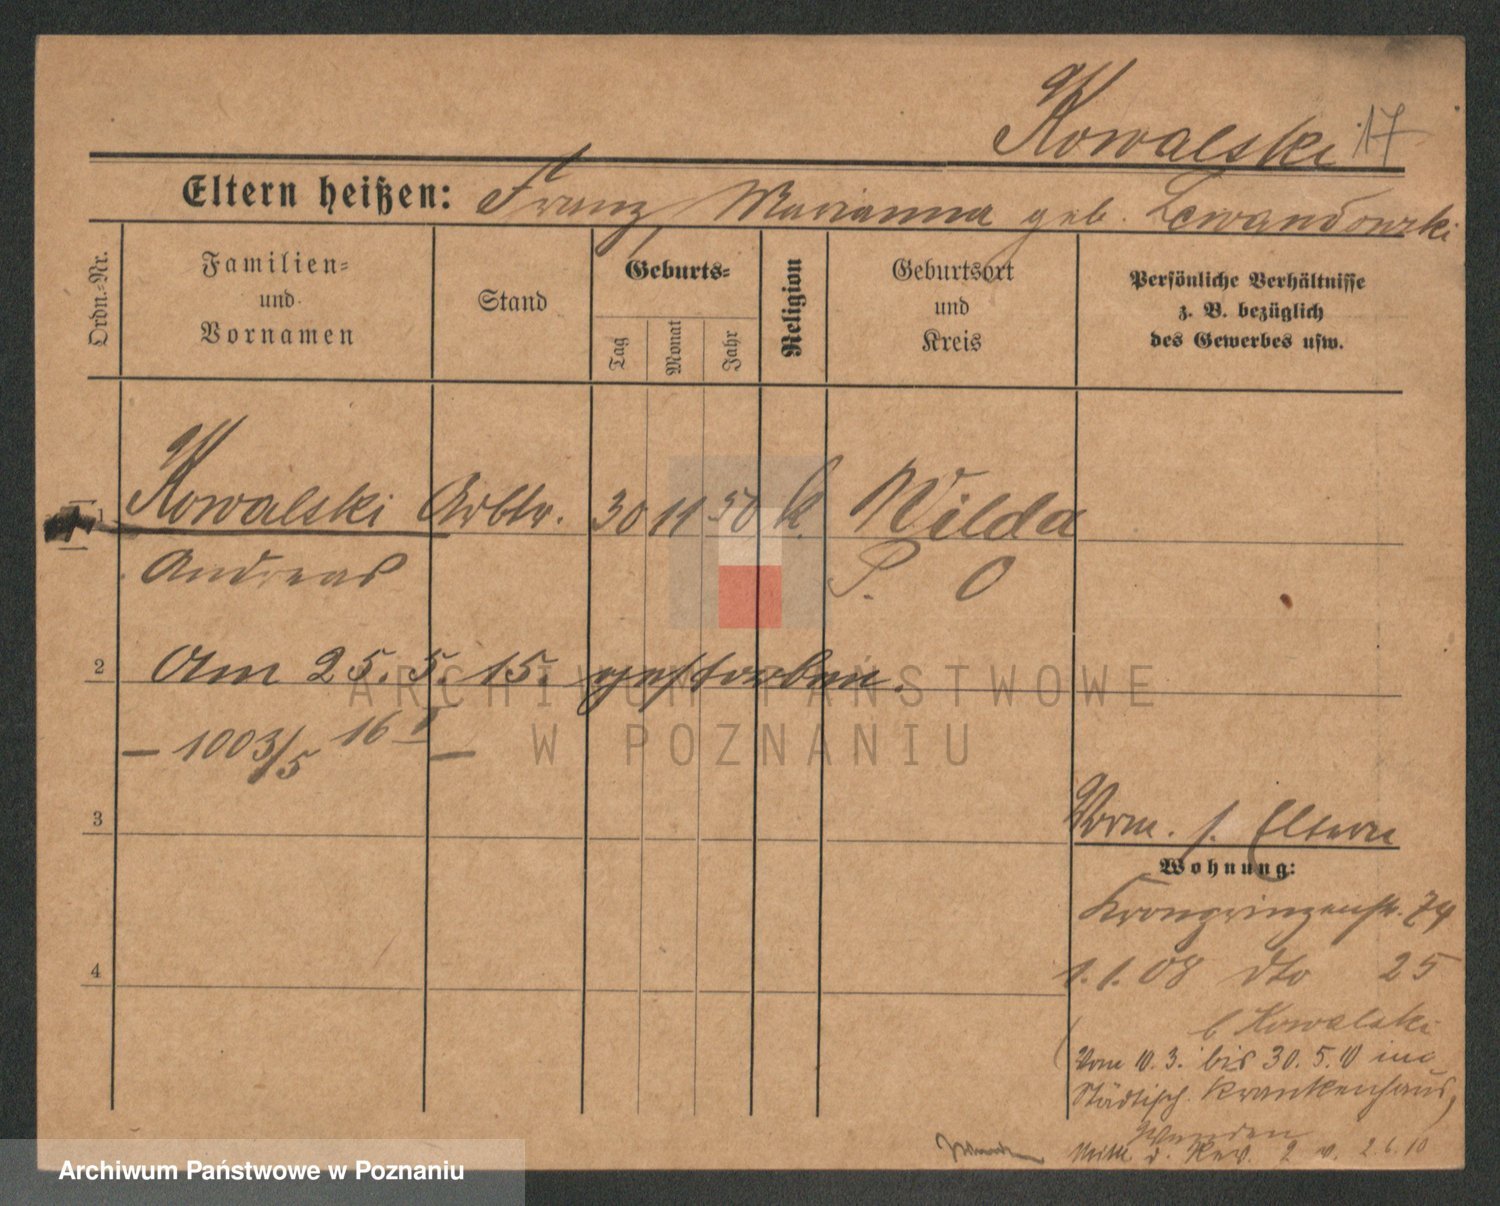 Kowalski 17
Eltern heißen: Franz, Marianna geb. Lewandowski
Ordn.-Nr.
Familien-
und
Vornamen
Stand
Geburts-
Tag
Monat
Jahr
Religion
Geburtsort
und
Kreis
Persönliche Verhältnisse
z. B. bezüglich
des Gewerbes usw.
1 Kowalski Arbtr. 30 11 50 k. Wilda
Andreas P. O
2 Am 25.5.15. gestorben.
— 1003/5 16 —
3
Vorm. s. Eltern
Wohnung:
Kronprinzenstr. 74
1.1.08 dto 25
4
b Kowalski
Vom 10.3. bis 30.5.10 im
Städtisch. Krankenhaus,
Wunden
Mitt. d. Rev. 2 v. 2.6.10
ARCHIWUM PAŃSTWOWE
W POZNANIU
Archiwum Państwowe w Poznaniu